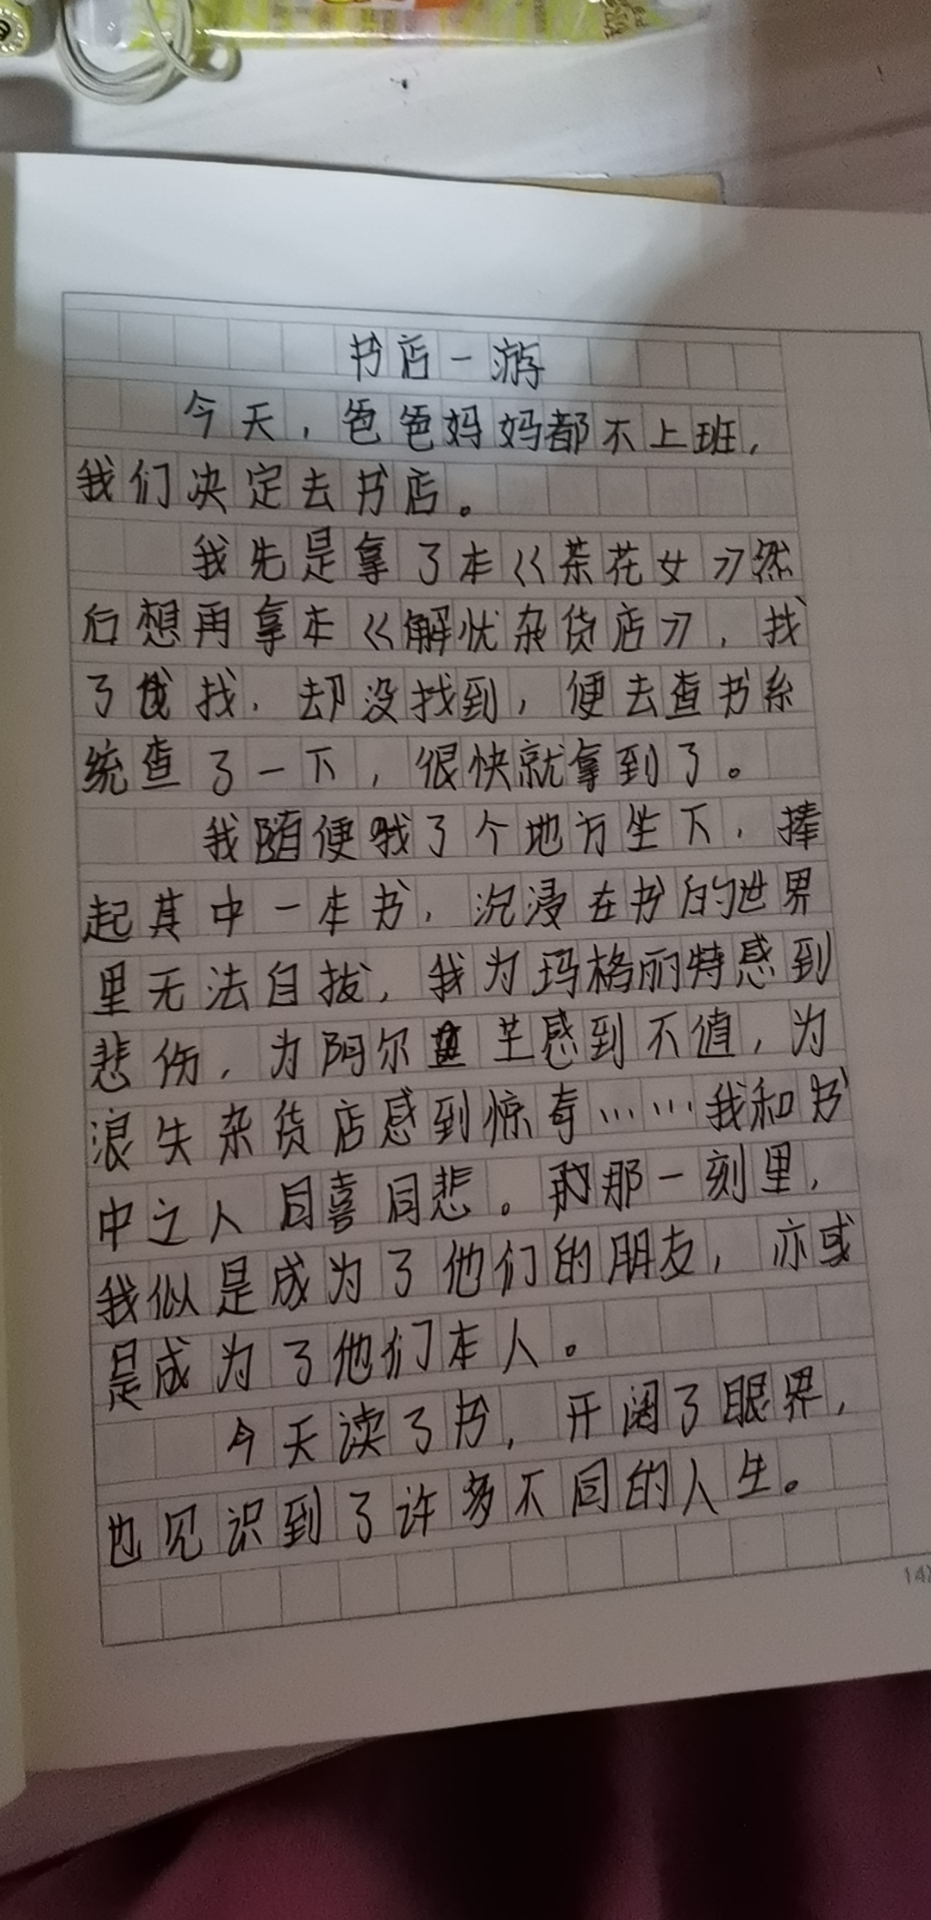 书店一游
今天，爸爸妈妈都不上班，
我们决定去书店。
我先是拿了本《茶花女》然
后想再拿本《解忧杂货店》，找
了找，却没找到，便去查书系
统查了一下，很快就拿到了。
我随便找了个地方坐下，捧
起其中一本书，沉浸在书的世界
里无法自拔，我为玛格丽特感到
悲伤，为阿尔芒感到不值，为
浪失杂货店感到惊奇……我和书
中之人同喜同悲。那一刻里，
我似是成为了他们的朋友，亦或
是成为了他们本人。
今天读了书，开阔了眼界，
也见识到了许多不同的人生。